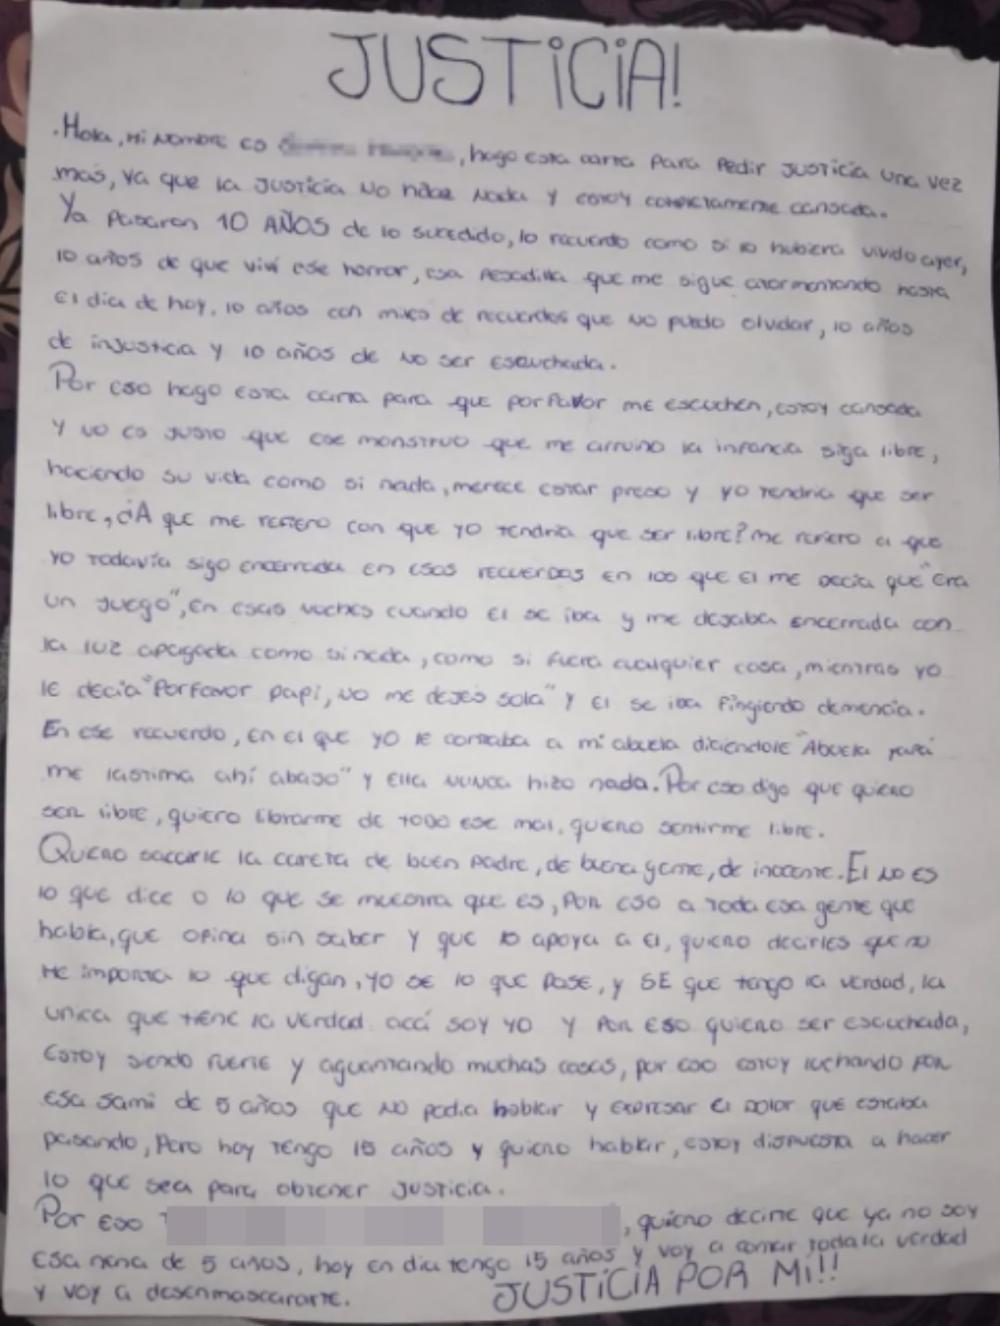 JUSTICIA!
.Hola, Mi Nombre es, hago esta carta para pedir JUSTICIA una vez
mas, ya que la JUSTICIA No hace Nada y estoy completamente cansada.
Ya pasaron 10 AÑOS de lo sucedido, lo recuerdo como si lo hubiera vivido ayer,
10 años de que viví ese horror, esa pesadilla que me sigue atormentando hasta
el dia de hoy, 10 años con miles de recuerdos que no puedo olvidar, 10 años
de injusticia y 10 años de no ser escuchada.
Por eso hago esta carta para que porfavor me escuchen, estoy cansada
y no es justo que ese monstruo que me arruino la infancia siga libre,
haciendo su vida como si nada, merece estar preso y yo tendria que ser
libre, ¿A que me refiero con que yo tendria que ser libre? me refiero a que
yo todavía sigo encerrada en esos recuerdos en los que el me decia que "era
un juego", en esas noches cuando el se iba y me dejaba encerrada con
la luz apagada como si nada, como si fuera cualquier cosa, mientras yo
le decia "Porfavor papi, no me dejes sola" y el se iba fingiendo demencia.
En ese recuerdo, en el que yo le contaba a mi abuela diciendole "Abuela papá
me lastima ahí abajo" y ella nunca hizo nada. Por eso digo que quiero
ser libre, quiero librarme de todo ese mal, quiero sentirme libre.
Quiero sacarle la careta de buen padre, de buena gente, de inocente. El no es
lo que dice o lo que se muestra que es, por eso a toda esa gente que
habla, que opina sin saber y que lo apoya a el, quiero decirles que no
me importa lo que digan, yo se lo que pase, y SE que tengo la verdad, la
unica que tiene la verdad acá soy yo y por eso quiero ser escuchada,
estoy siendo fuerte y aguantando muchas cosas, por eso estoy luchando por
esa sami de 5 años que no podia hablar y expresar el dolor que estaba
pasando, pero hoy tengo 15 años y quiero hablar, estoy dispuesta a hacer
lo que sea para obtener justicia.
Por eso, quiero decirte que ya no soy
esa nena de 5 años, hoy en dia tengo 15 años y voy a contar toda la verdad
y voy a desenmascararte.
JUSTICIA POR MI!!